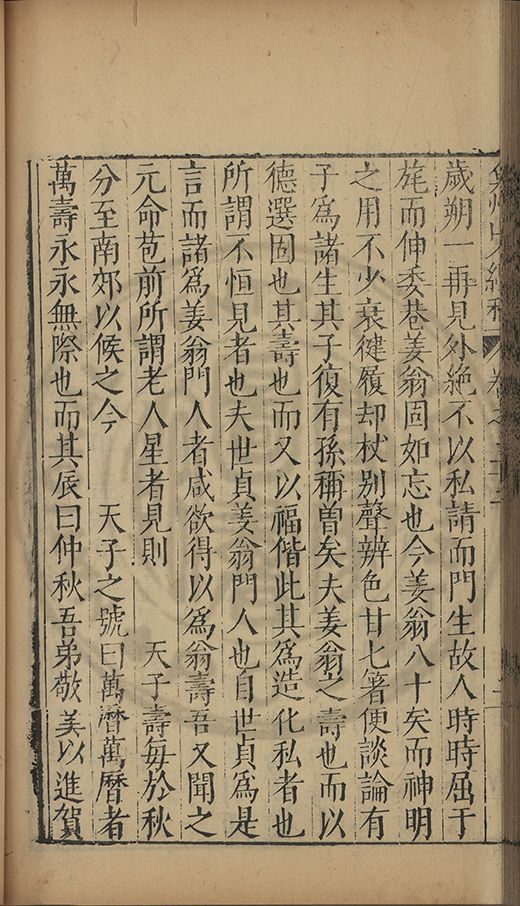 弇州山人續稿 卷之三十二
歲朔一再見外絶不以私請而門生故人時時屈于
旄而伸委巷姜翁固如忘也今姜翁八十矣而神明
之用不少衰徤履却杖别聲辨色甘七箸便談論有
子爲諸生其子復有孫稱曾矣夫姜翁之壽也而以
德選固也其壽也而又以福偕此其爲造化私者也
所謂不恒見者也夫世貞姜翁門人也自世貞爲是
言而諸爲姜翁門人者咸欲得以爲翁壽吾又聞之
元命苞前所謂老人星者見則 天子壽每於秋
分至南郊以候之今 天子之號曰萬曆萬曆者
萬壽永永無際也而其辰曰仲秋吾弟敬美以進賀